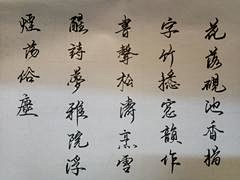 花落硯池香搨
字竹搖窗韻作
書聲松濤烹雪
醒詩夢雅院浮
煙蕩俗塵